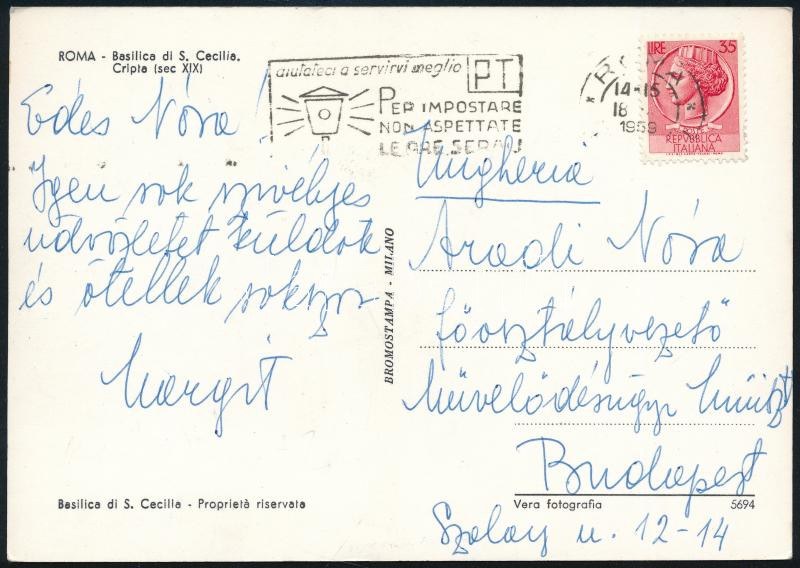 ROMA - Basilica di S. Cecilia.
Cripta (sec XIX)
Edes Nóra!
Igen sok szivélyes
üdvözletet küldök
és ölellek sokszor
Margit
Basilica di S. Cecilia - Proprietà riservata
BROMOSTAMPA - MILANO
aiutateci a servirvi meglio
PT
PER IMPOSTARE
NON ASPETTATE
LE ORE SERALI
ROMA
14-15
18
1959
LIRE 35
REPVBBLICA
ITALIANA
Ungheria
Aradi Nóra
főosztályvezető
Művelődésügyi Miniszt
Budapest
Vera fotografia 5694
Szalay u. 12-14